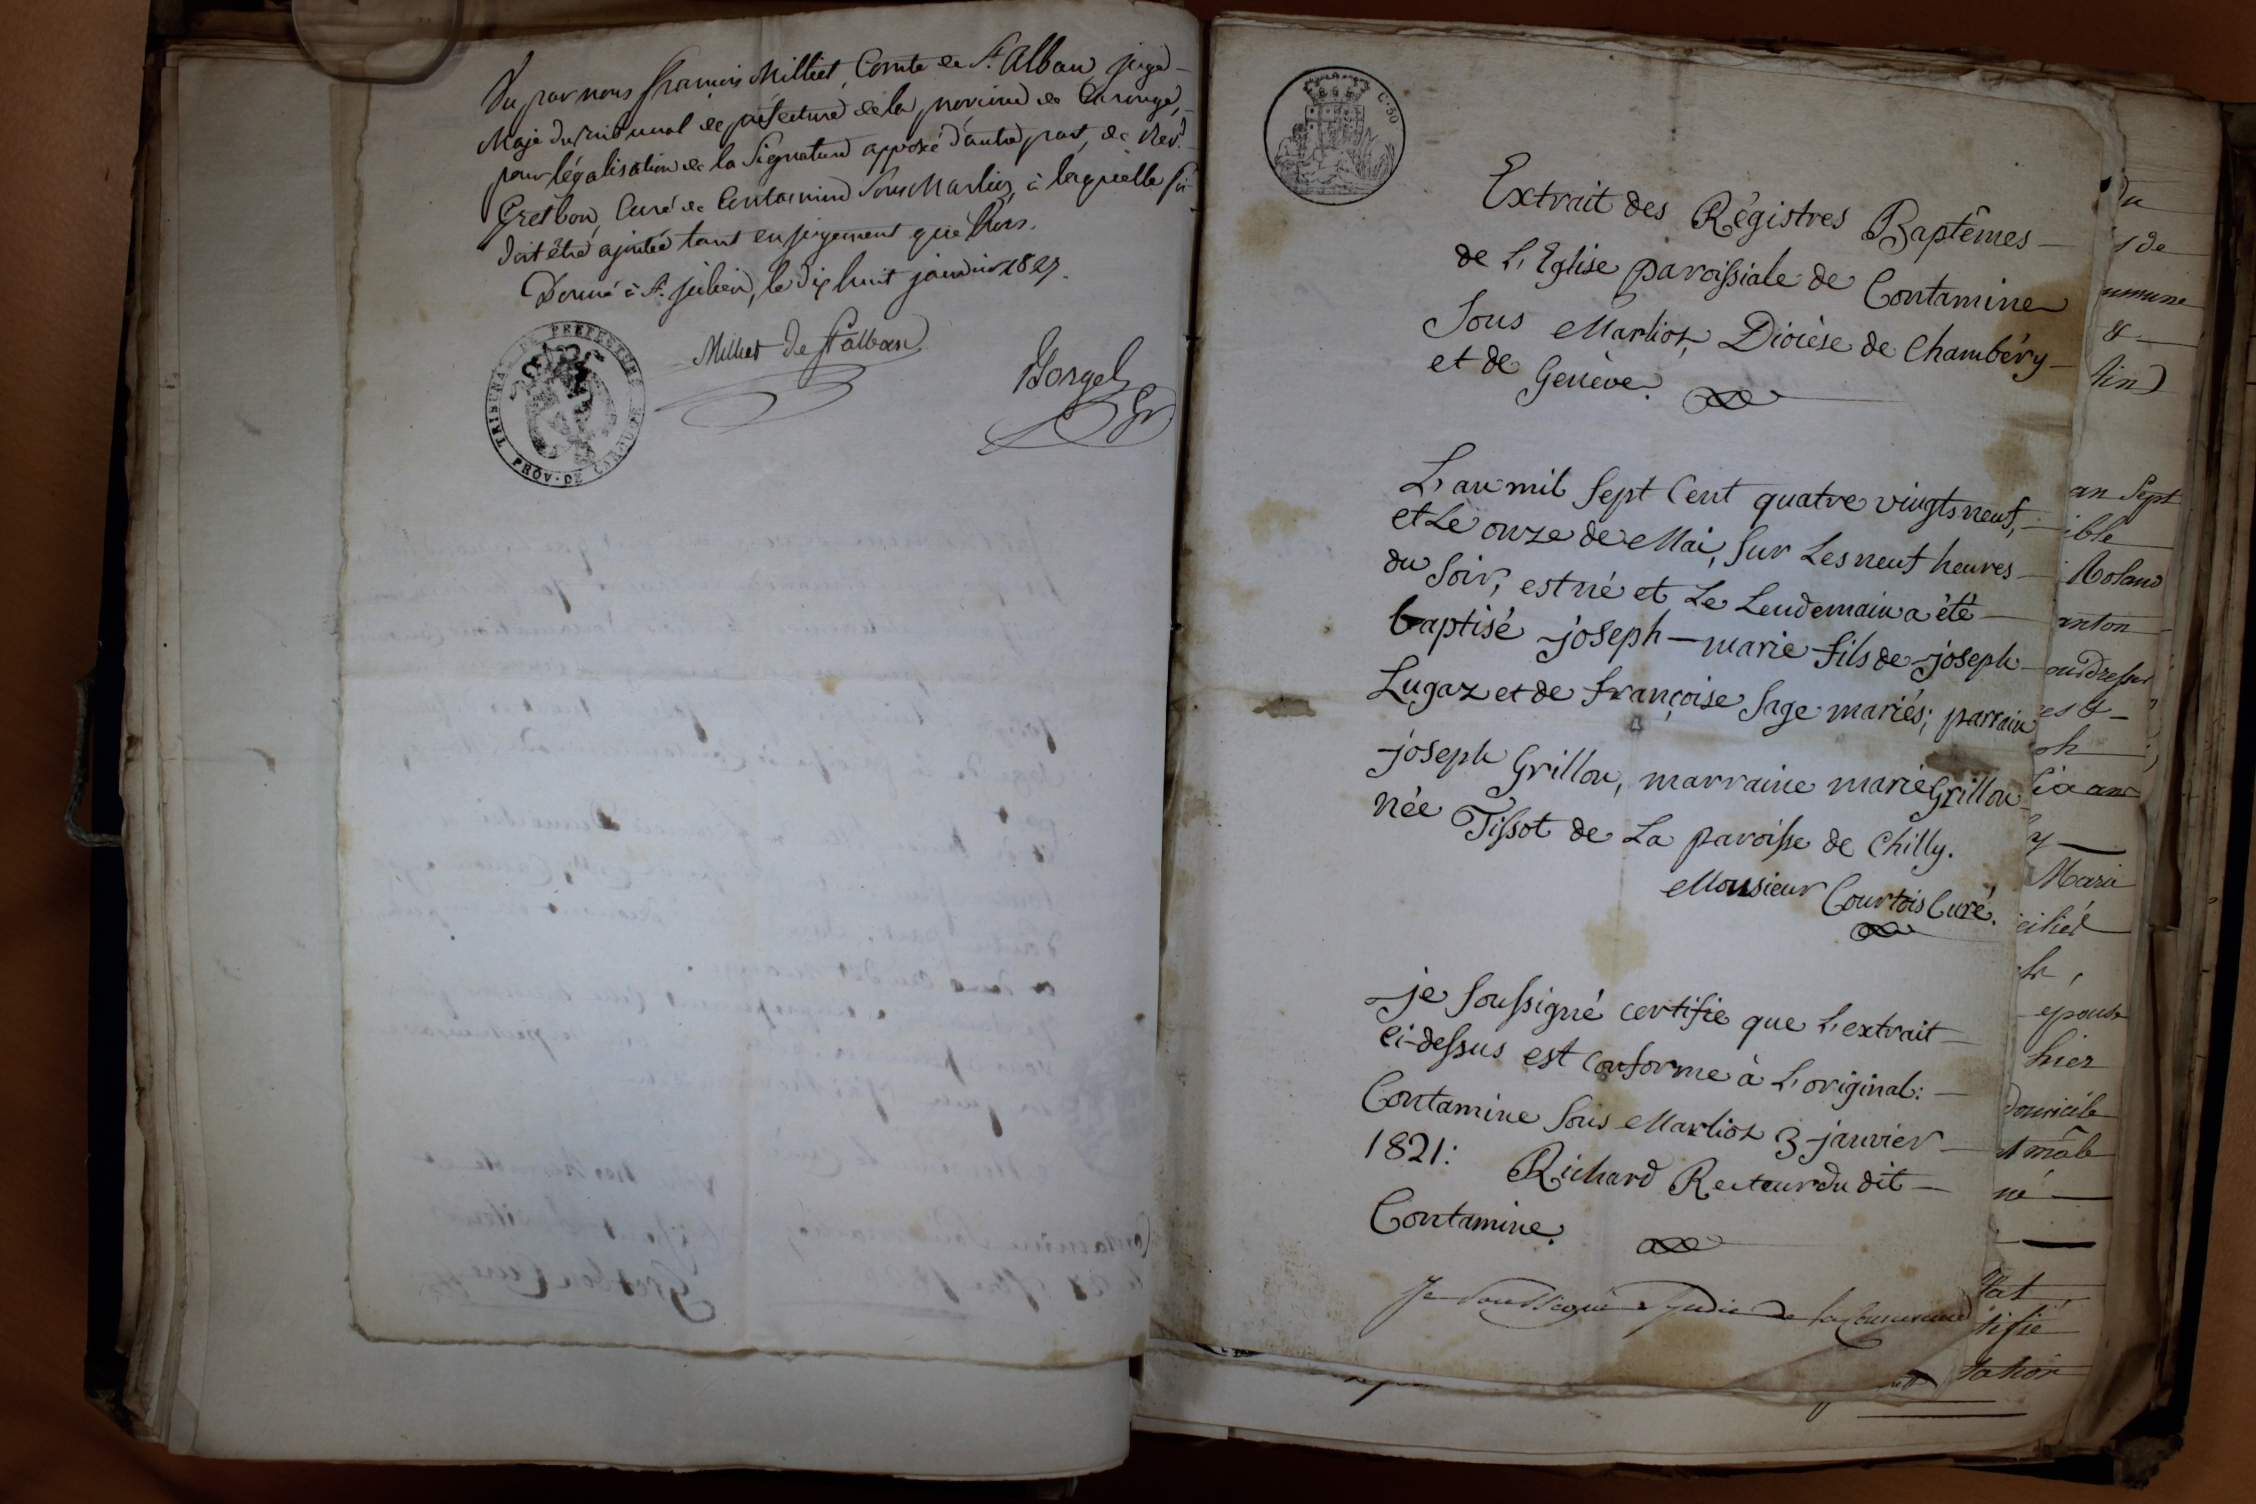 Vu par nous François Milliet, Comte de St. Alban, juge-
Maje du tribunal de préfecture de la province de Carouge,
pour légalisation de la Signature apposé d'autre part, de Revd.
Gretbon, Curé de Contamine Sous Marlioz, à laquelle foi
doit être ajoutée tant en jugement que hors.
Donné à St. Julien, le dix huit janvier 1827.
Milliet de St alban
TRIBUNAL DE PREFECTURE
PROV. DE CAROUGE
C. 50
Extrait des Régistres Baptêmes
de L'Eglise paroissiale de Contamine
Sous Marlioz, Diocèse de Chambéry
et de Genève.
L'an mil sept Cent quatre vingts neuf,
et Le onze de Mai, sur Les neuf heures
du soir, est né et Le Lendemain a été
baptisé joseph-marie fils de joseph
Lugaz et de françoise Sage mariés; parrain
joseph Grillon, marraine marie Grillon
née Tissot de La paroisse de Chilly.
Monsieur Courtois Curé.
je soussigné certifie que L'extrait
ci-dessus est conforme à L'original:
Contamine sous Marlioz 3 janvier
1821: Richard Recteur du dit
Contamine.
Je soussigné Syndic de la Commune
s de
ommune
&
an Sept
ible
Roland
anton
ou dresser
es &
ix ans
y
Marie
icilié
épouse
hier
domicile
t mâle
né
tat
tifié
tation